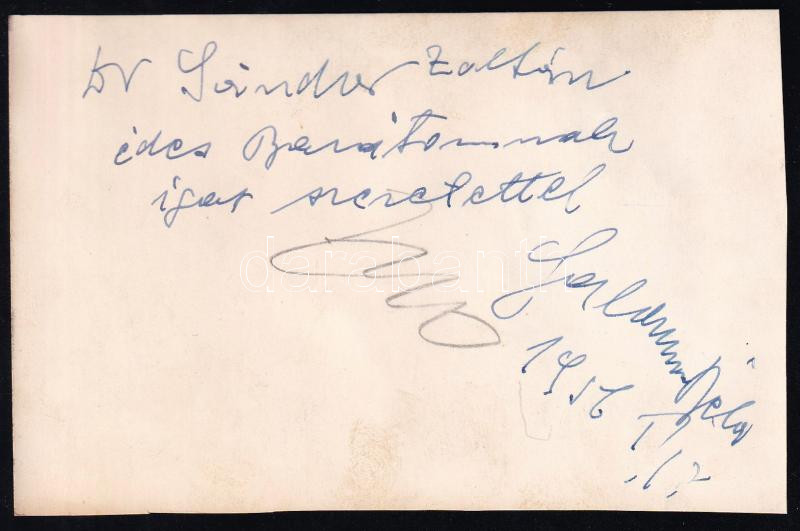 Dr Sándor Zoltán
édes Barátomnak
igaz szeretettel
Salamon Béla
1956
darabanth